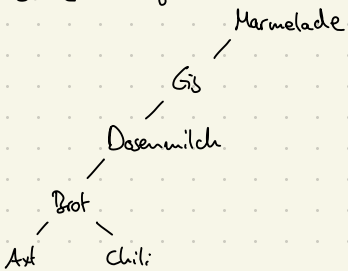 Marmelade
Gis
Dosenmilch
Brot
Axt
Chili